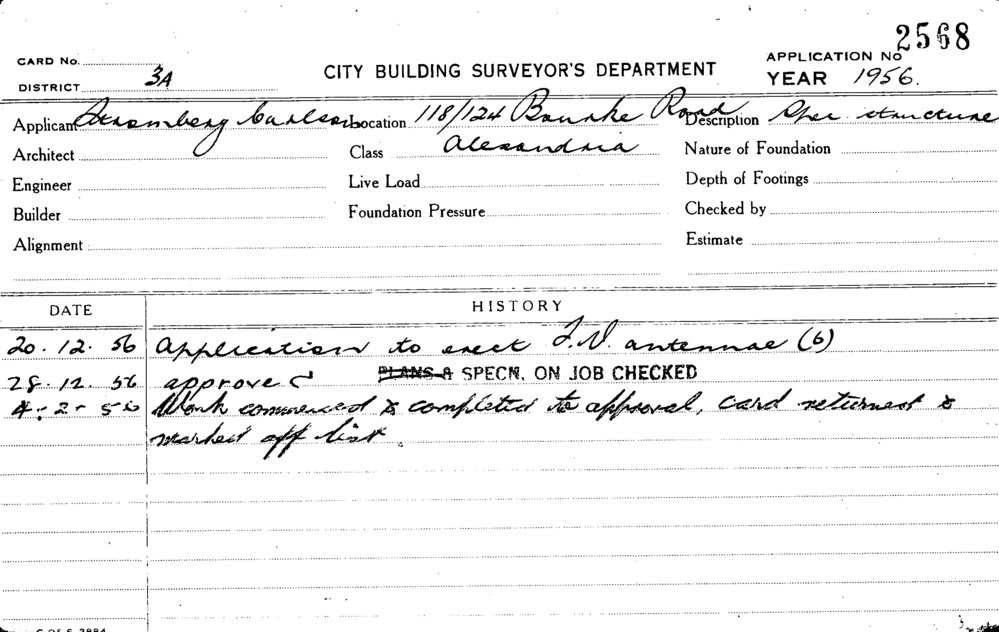 2568
CARD No. APPLICATION No
DISTRICT 3A CITY BUILDING SURVEYOR'S DEPARTMENT YEAR 1956.
Applicant Stromberg Carlson Location 118/124 Bourke Road Description Spec. structure
Architect Class Alexandria Nature of Foundation
Engineer Live Load Depth of Footings
Builder Foundation Pressure Checked by
Alignment Estimate
DATE HISTORY
20.12.56 Application to erect T.V. antennae (6)
28.12.56 approved PLANS & SPECN. ON JOB CHECKED
4-2-56 Work commenced & completed to approval, card returned &
marked off list.